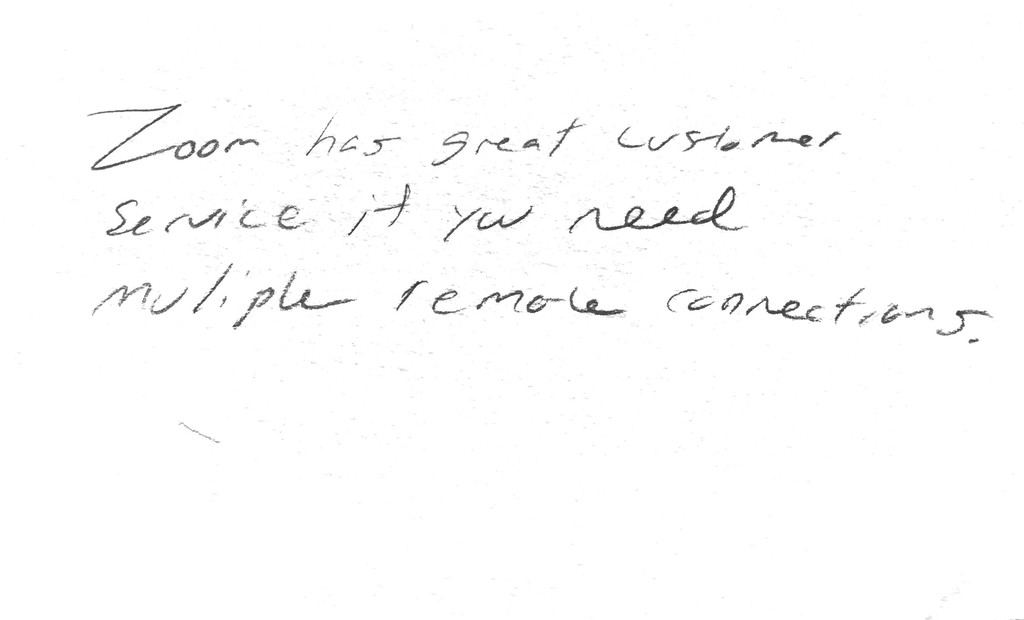 Zoom has great customer
service if you need
muliple remote connections.